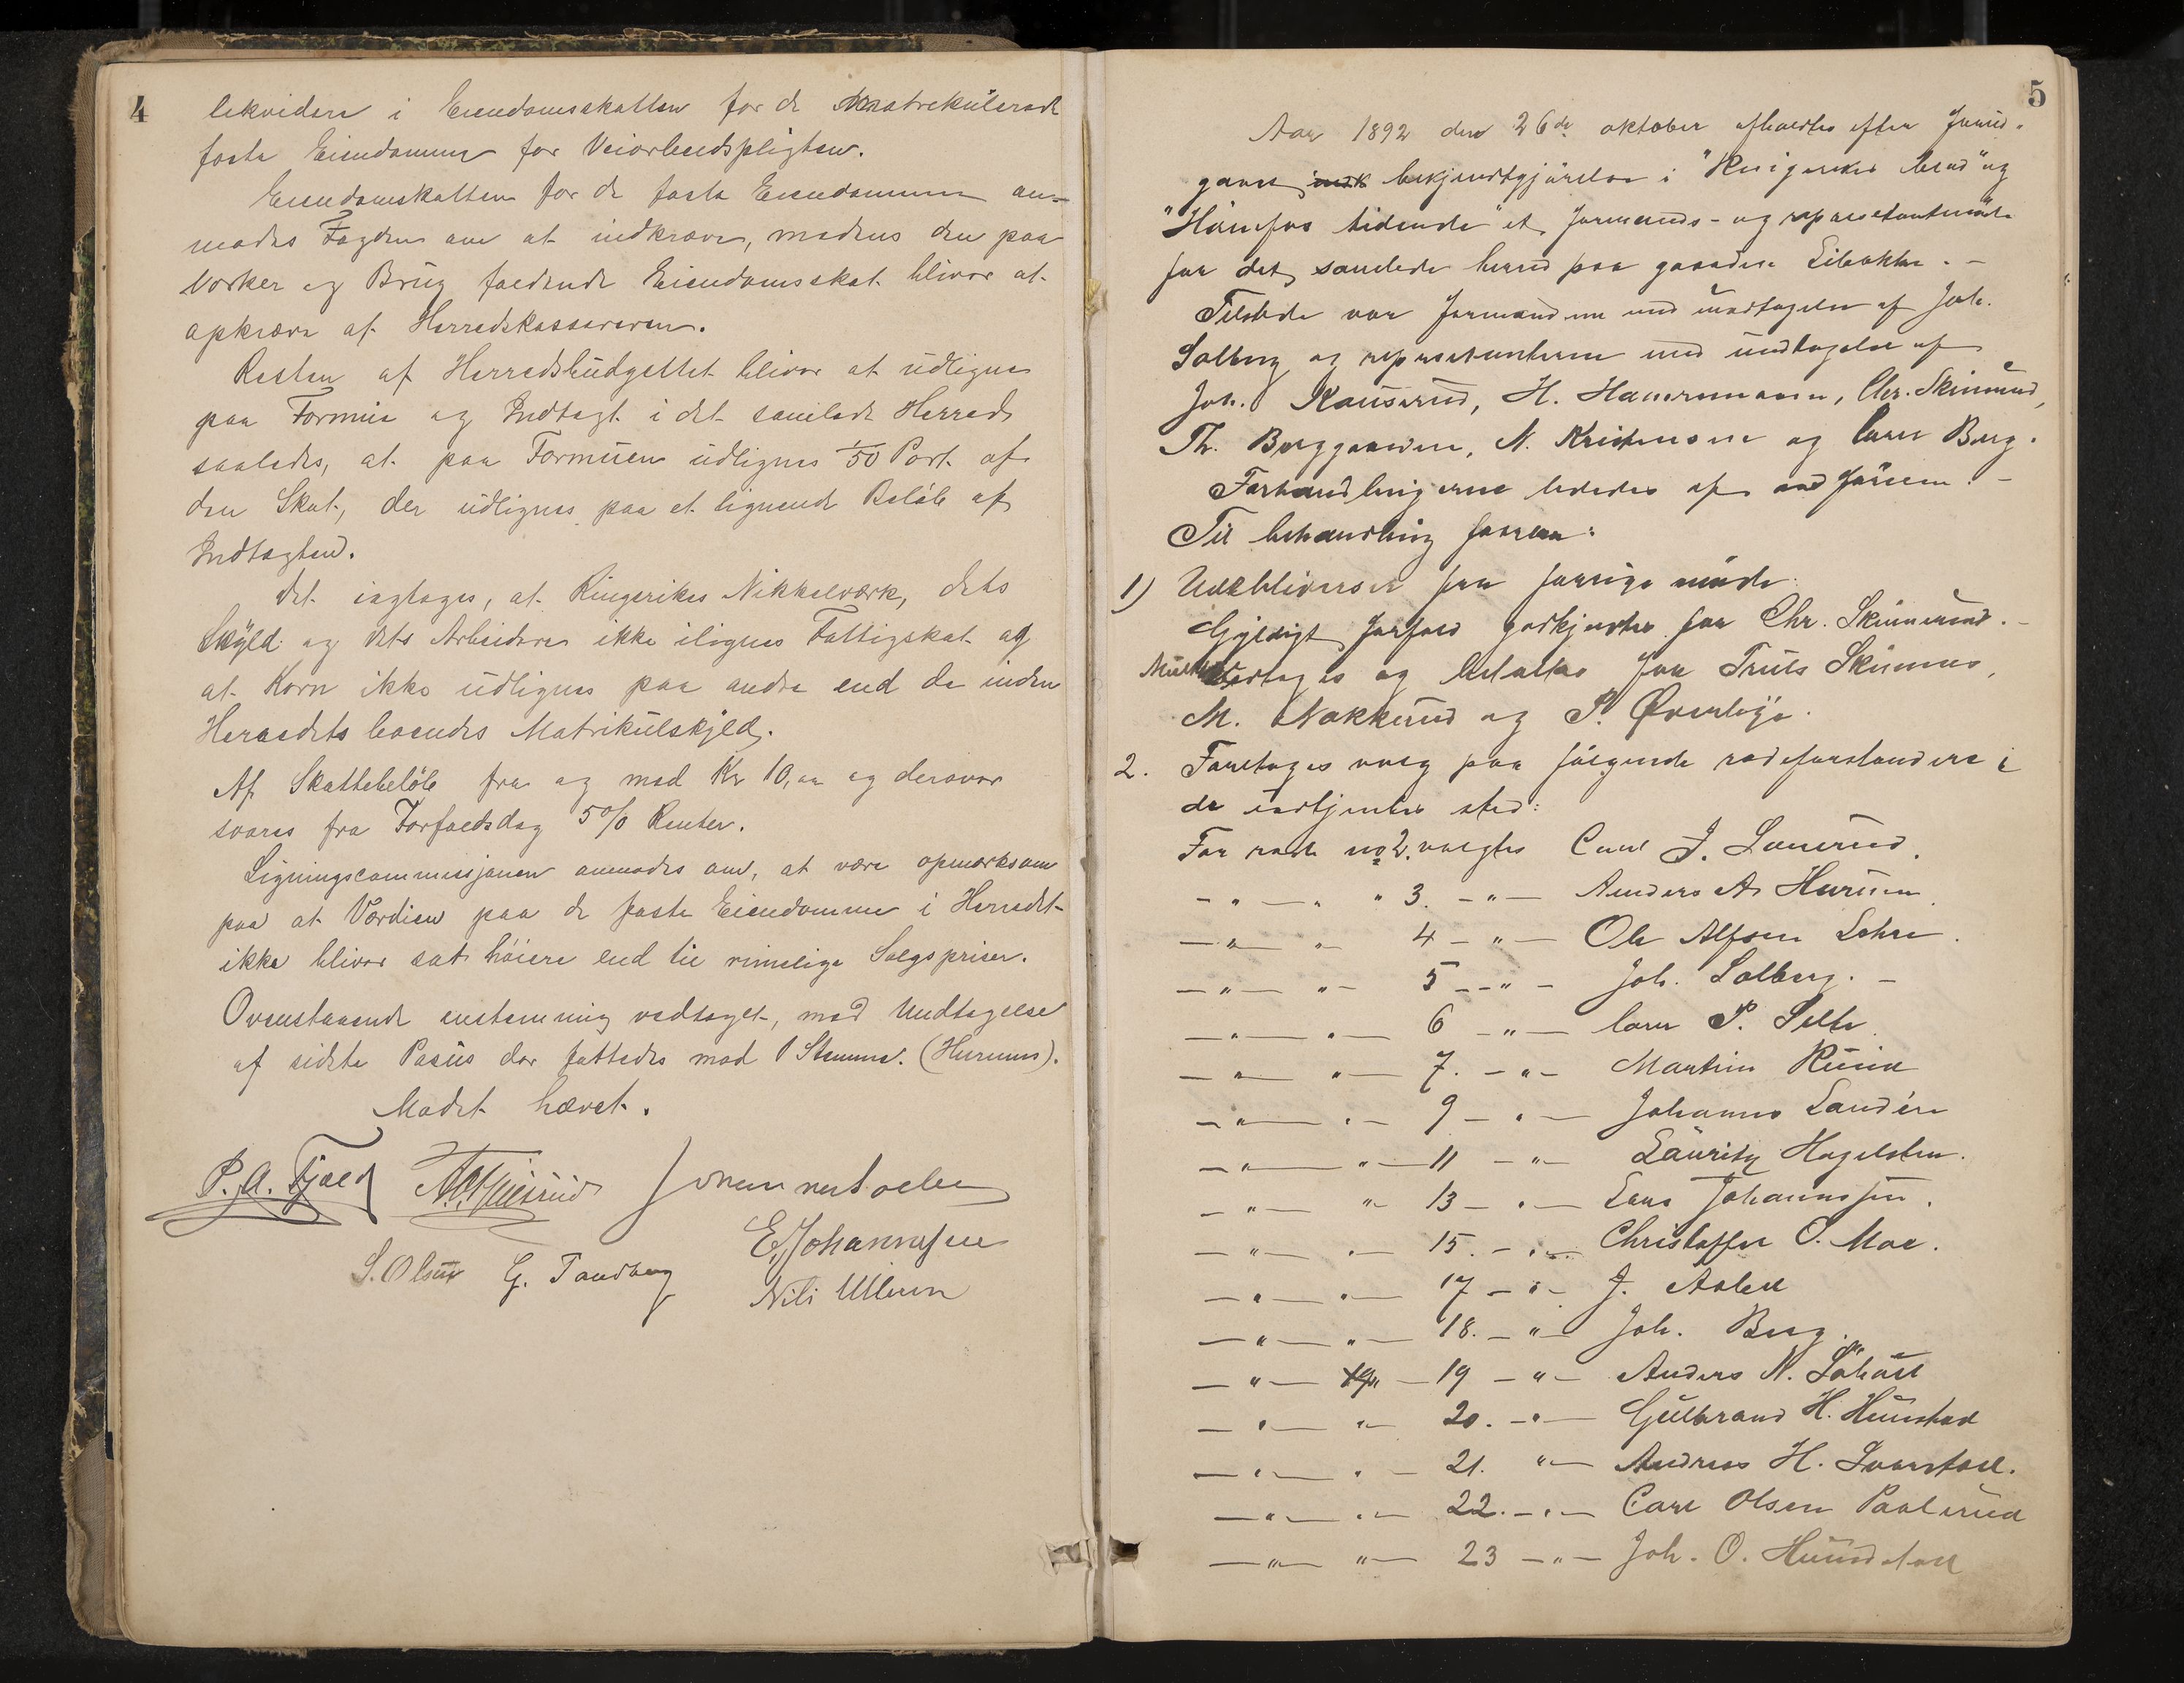 4
likvidere i Eiendomsskatten for de Matrekulerede
faste Eiendomme for Veiarbeidspligten.
Eiendomsskatten for de faste Eiendomme an-
modes Fogden om at indkræve, medens den paa
Værker og Brug faldende Eiendomsskat bliver at
opkræve af Herredskassereren.
Resten af Herredsbudgettet bliver at udligne
paa Formue og Indtægt i det samlede Herred
saaledes, at paa Formuen udlignes 1/50 Part af
den Skat, der udlignes paa et lignende Beløb af
Indtægten.
Det iagtages, at Ringerikes Nikkelværk, dets
Skyld og dets Arbeidere ikke ilignes Fattigskat og
at Korn ikke udlignes paa andre end de inden
Herredets boendes Matrikulskyld.
Af Skattebeløb fra og med Kr 10,00 og derover
svares fra Forfaldsdag 5% Renter.
Ligningscommissjonen anmodes om, at være opmerksom
paa at Værdien paa de faste Eiendomme i Herredet
ikke bliver sat høiere end til rimelige Salgspriser.
Ovenstaaende enstemmig vedtaget, med Undtagelse
af sidste Pasus der fattedes mod 1 Stemme. (Hurums).
Mødet hævet.
P. A. Fjeld
S. Olsen G. Tandberg E. Johannesen
Nils Ullern
5
Aar 1892 den 26de oktober afholdtes efter forud-
gaaet bekjendtgjørelse i "Ringerikes blad" og
"Hønefos tidende" et formands- og representantmøde
for det samlede herred paa gaarden Libakke. -
Tilstede var formændene med undtagelse af Joh.
Solberg og representanterne med undtagelse af
Joh. Kauserud, H. Hauersmoen, Chr. Skinnerud,
Th. Berggaarden, N. Kristensen og Lars Berg.
Forhandlingerne lededes af ordføreren. -
Til behandling forelaa:
1) Udeblivelser fra forrige møde.
Gyldigt forfald godkjendtes for Chr. Skinnerud. -
Mulkt vedtages og betaltes for Truls Skinnes,
M. Nakkerud og P. Øverbye.
2. Foretoges valg paa følgende rodeforstandere i
de udtjentes sted:
For rode no 2. valgtes Carl J. Lunerud.
- " - " " 3. - " - Anders A. Hurum.
- " - " - 4 - " - Ole Alfsen Lohre.
- " - " - 5 - " - Joh. Solberg. -
- " - " - 6 - " - Lars P. Selte.
- " - " - 7. - " - Martin Ruud
- " - " - 9 - " - Johannes Landén
- " - " - 11 - " - Lauritz Hagelsten.
- " - " - 13 - " - Lars Johannessen.
- " - " - 15. - " - Christoffer O. Moe.
- " - " - 17 - " - J. Asbell
- " - " - 18. - " - Joh. Berg.
- " - " - 19 - " - Anders N. Søhol
- " - " - 20. - " - Gulbrand H. Hunstad
- " - " - 21. " - Andreas H. Svarstad.
- " - " - 22. - " - Carl Olsen Paalerud
- " - " - 23 - " - Joh. O. Hunstad